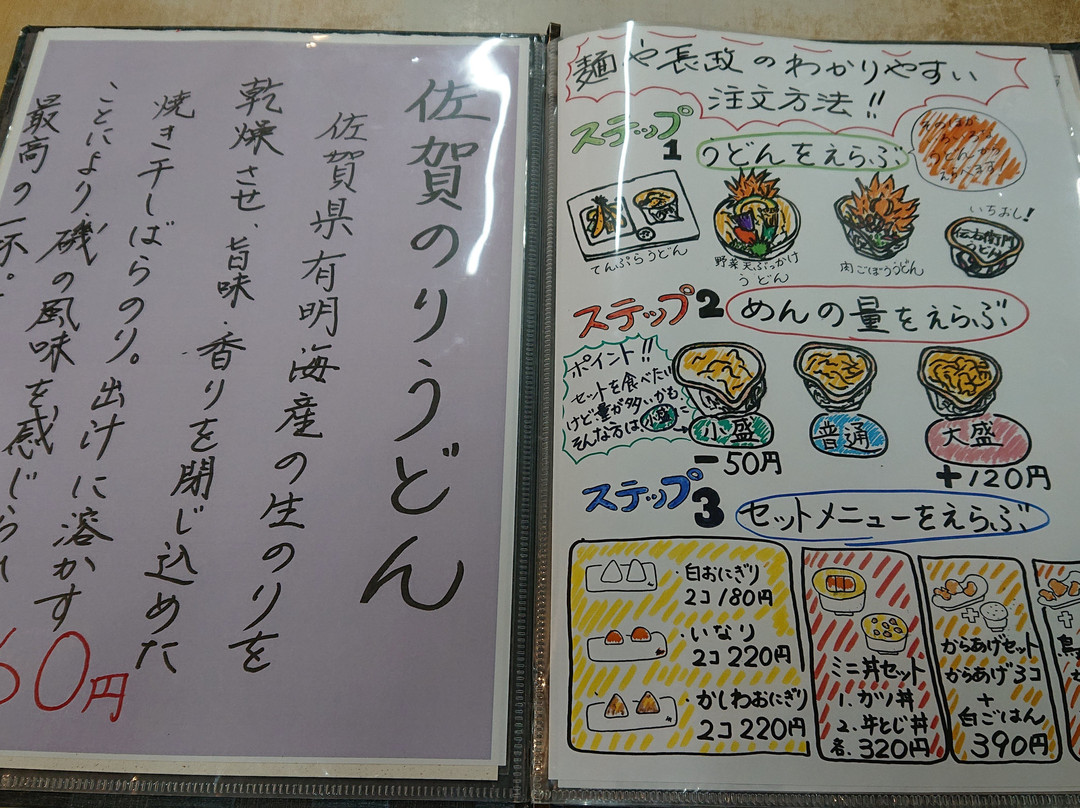 佐賀のりうどん
佐賀県有明海産の生のりを
乾燥させ、旨味・香りを閉じ込めた
焼き干しばらのり。出汁に溶かす
ことにより、磯の風味を感じられ
最高の一杯。
60円
麺や長政のわかりやすい
注文方法!!
ステップ1
うどんをえらぶ
うどんから
えらべます!
てんぷらうどん
野菜天ぶっかけ
うどん
肉ごぼううどん
いちおし!
伝右衛門
うどん
ステップ2
めんの量をえらぶ
ポイント!!
セットを食べたい
けど量が多いかも
そんな方は小盛
小盛
-50円
普通
大盛
+120円
ステップ3
セットメニューをえらぶ
・白おにぎり
2コ180円
・いなり
2コ220円
・かしわおにぎり
2コ220円
ミニ丼セット
1.カツ丼
2.牛とじ丼
各.320円
からあげセット
からあげ3コ
+
白ごはん
390円